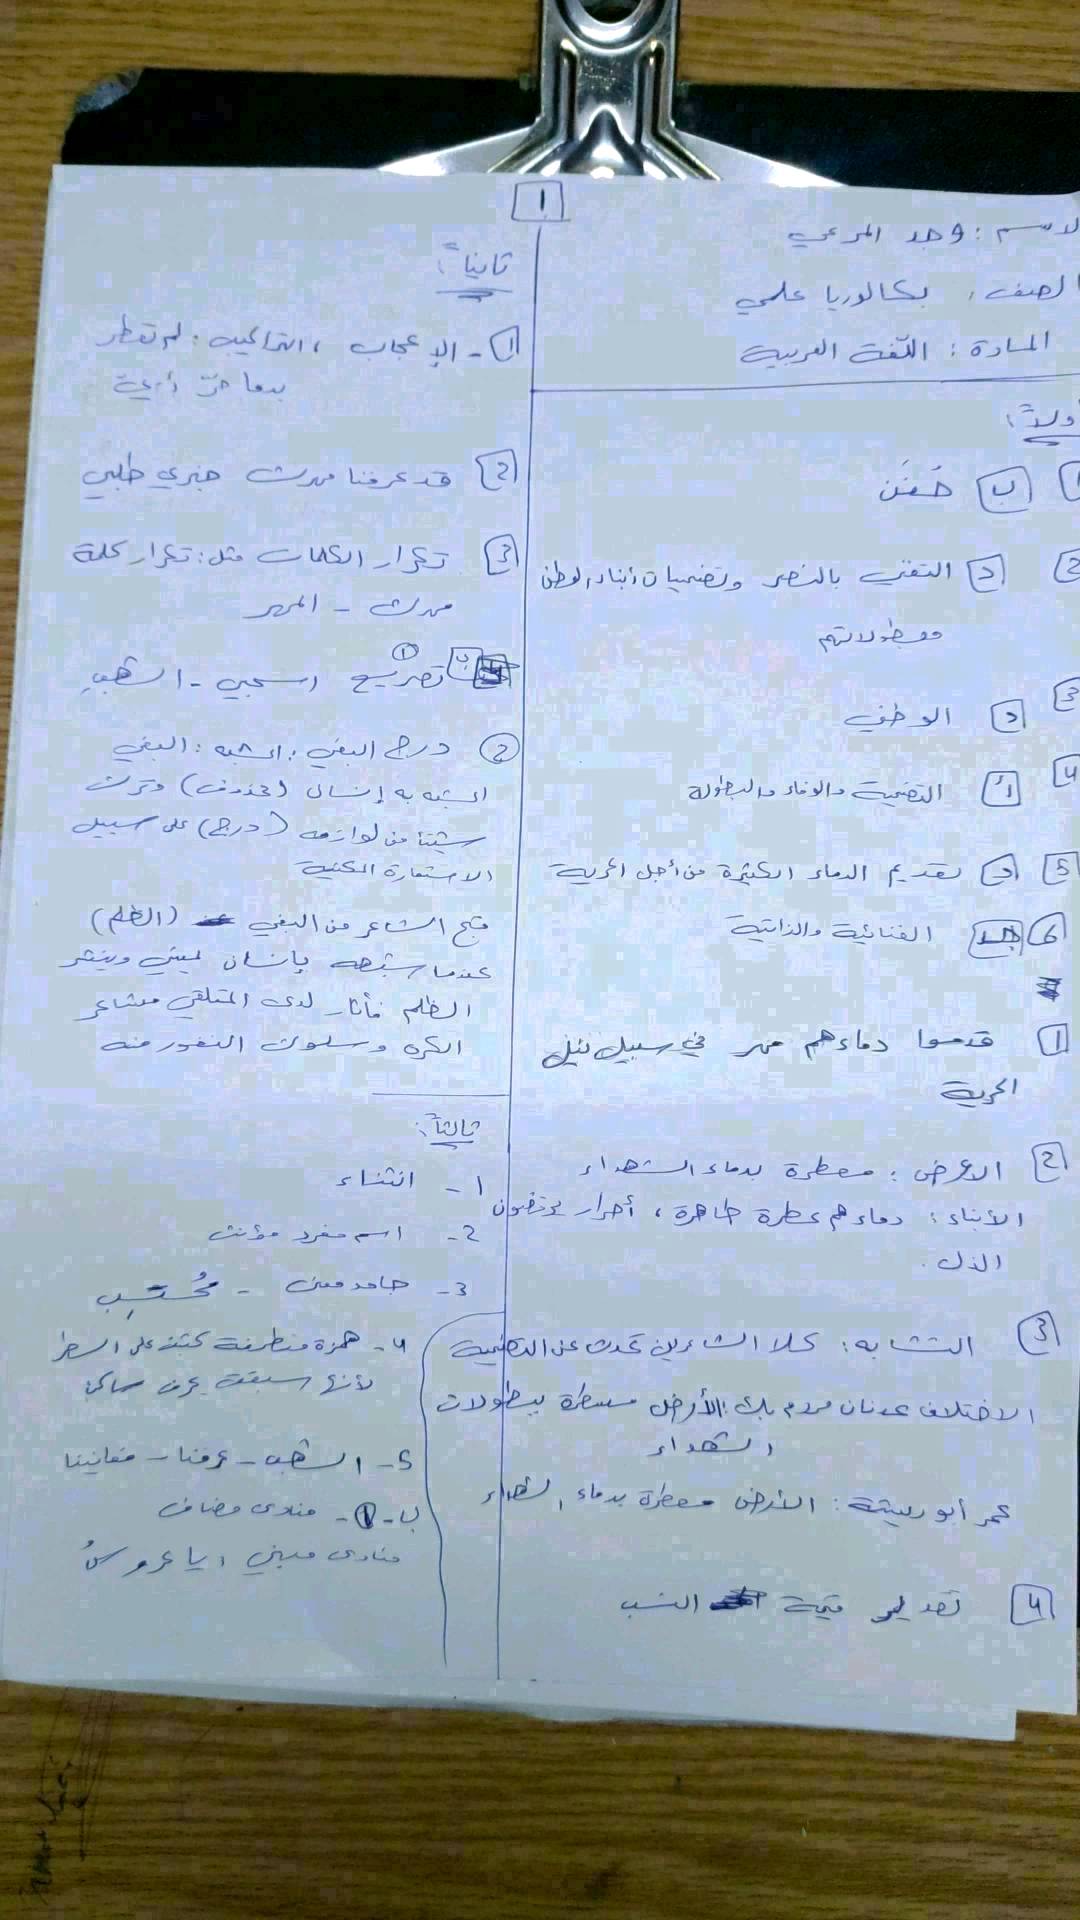 1
الاسم : وجد المرعي
الصف : بكالوريا علمي
المادة : اللغة العربية
أولاً :
1 ب خَفَتَ
2 د التغني بالنصر وتضحيات أبناء الوطن
وبطولاتهم
3 د الوطني
4 أ التضحية والوفاء والبطولة
5 د تقديم الدماء الكثيرة من أجل الحرية
6 الغنائية والذاتية
1 قدموا دماءهم مهر في سبيل نيل
الحرية
2 الارض : معطرة بدماء الشهداء
الأبناء : دماءهم عطرة طاهرة ، أحرار يرفضون
الذل .
3 التشابه : كلا الشاعرين تحدث عن التضحية
الاختلاف عدنان مردم بك : الأرض مسطرة ببطولات
الشهداء
عمر أبو ريشة : الأرض معطرة بدماء الشهداء
4 تقدير قيمة النسب
ثانياً :
1 - الإعجاب ، التراكيب : لم تعطر
بدما حرّ أبي
2 قد عرفنا مهرك خبري طلبي
3 تكرار الكلمات مثل : تكرار كلمة
مهرك - المهر
ب 1 تصريع اسحبي - الشهب
2 درج البغي : المشبه : البغي
المشبه به إنسان (محذوف) وترك
شيئاً من لوازمه (درج) على سبيل
الاستعارة المكنية
قبح الشاعر من البغي (الظلم)
عندما شبهه بإنسان يمشي وينشر
الظلم فأثار لدى المتلقي مشاعر
الكره وسلوك النفور منه
ثالثاً :
1 - انتشاء
2 - اسم مفرد مؤنث
3 - جامد معنى -
4 - همزة متطرفة كتبت على السطر
لأنها سبقت بحرف ساكن
5 - الشهب - عرفنا - مغانينا
ب - 1 - منادى مضاف
منادى مبني ، يا عروسُ